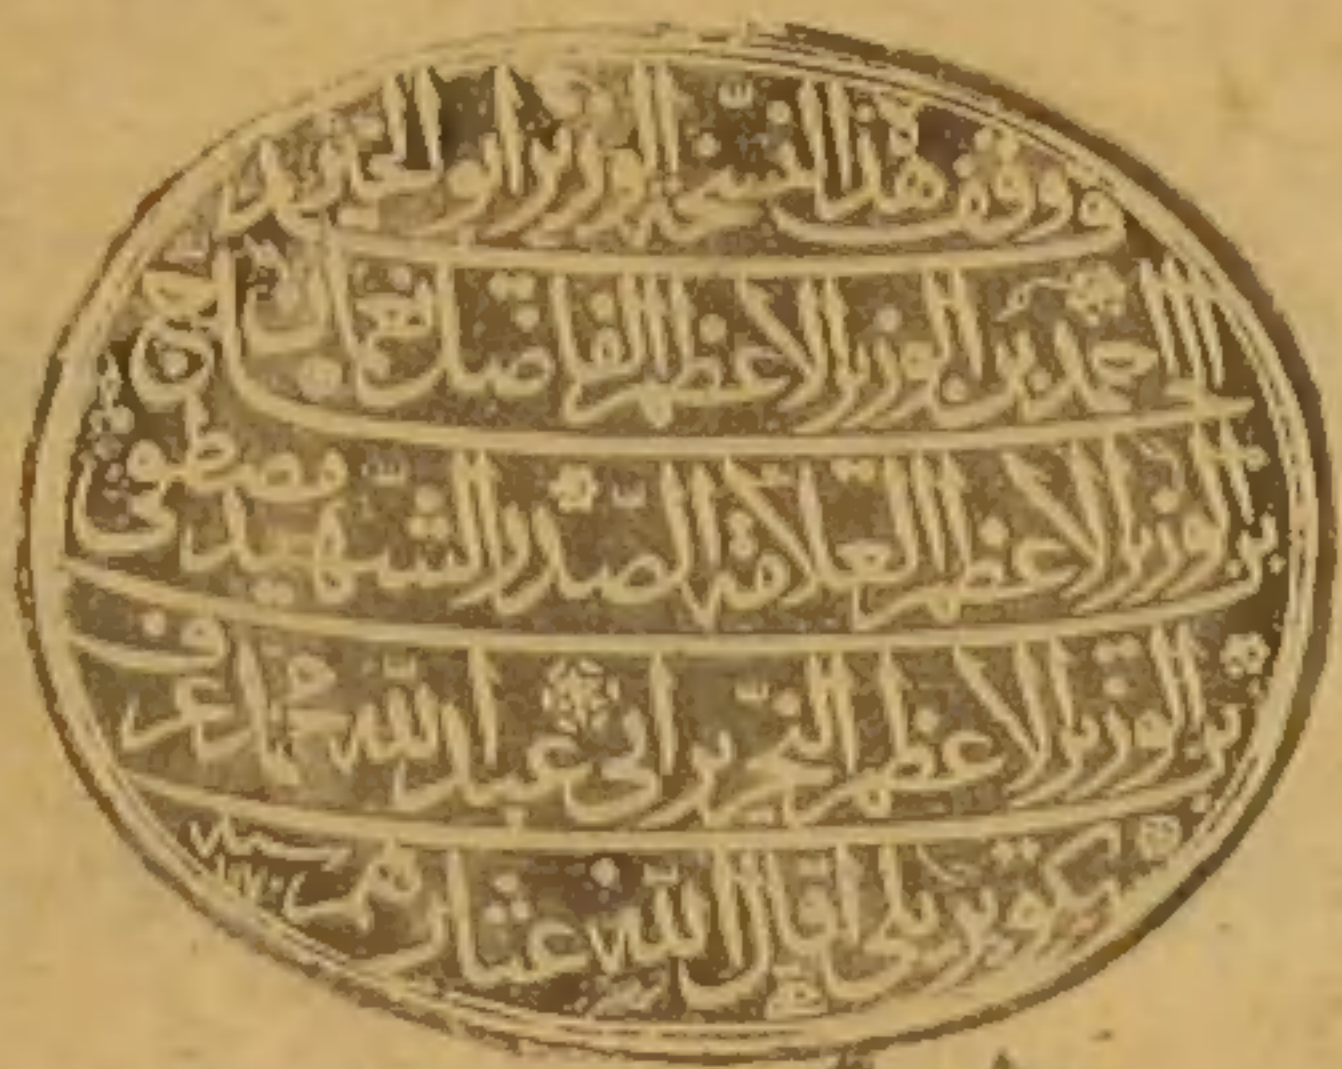 وقف هذا النسخة الوزير ابو الخير
احمد بن الوزير الاعظم الفاضل نعمان
بن الوزير الاعظم العلامة الصدر الشهيد مصطفى
بن الوزير الاعظم النحرير ابي عبد الله محمد عرف
بكوپريلي اقال الله عثارهم